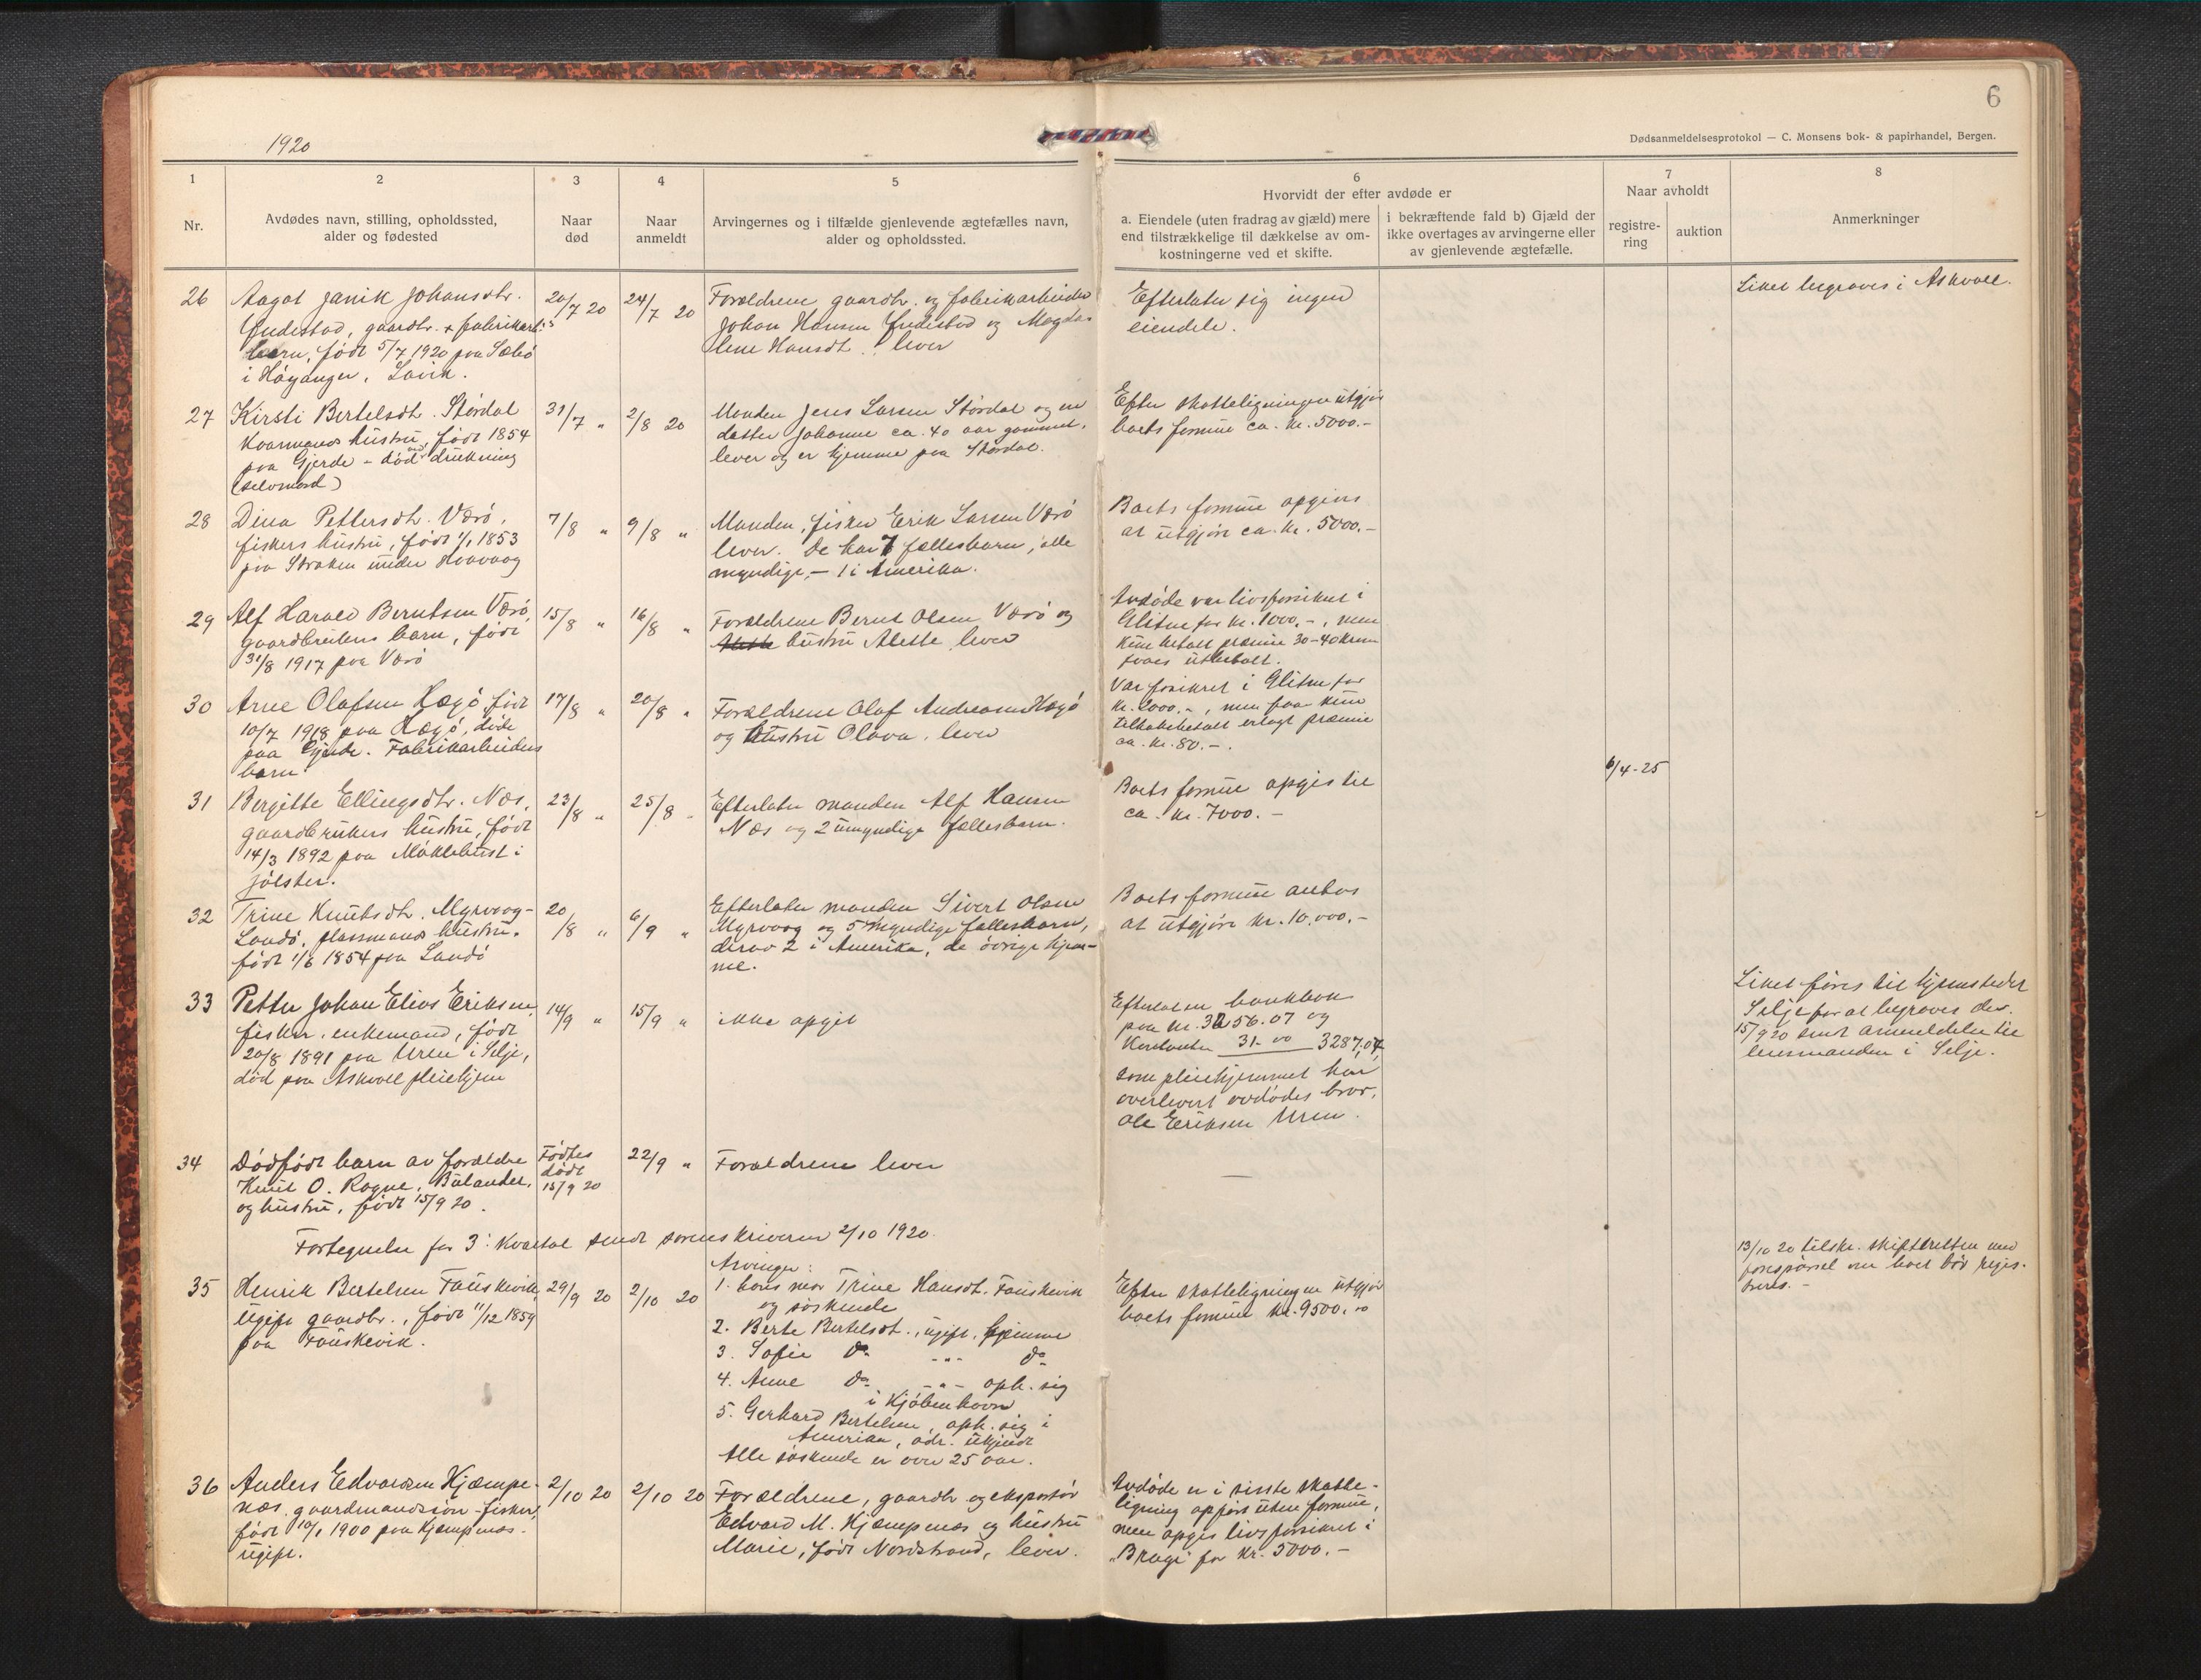 6
1920
Dødsanmeldelsesprotokol — C. Monsens bok- & papirhandel, Bergen.
1
2
3
4
5
6
7
8
Nr.
Avdødes navn, stilling, opholdssted,
alder og fødested
Naar
død
Naar
anmeldt
Arvingernes og i tilfælde gjenlevende ægtefælles navn,
alder og opholdssted.
Hvorvidt der efter avdøde er
a. Eiendele (uten fradrag av gjæld) mere
end tilstrækkelige til dækkelse av om-
kostningerne ved et skifte.
i bekræftende fald b) Gjæld der
ikke overtages av arvingerne eller
av gjenlevende ægtefælle.
Naar avholdt
registre-
ring
auktion
Anmerkninger
26
Aagot Janik Johansdtr.
Yndestad, gaardbr. & fabrikarb:s
barn, født 5/7 1920 paa Sæbø
i Høyanger, Lavik.
20/7 20
24/7 20
Forældrene gaardbr. og fabrikarbeider
Johan Hansen Yndestad og Magda-
lene Hansdt. lever
Efterlater sig ingen
eiendele.
Liket begraves i Askvoll.
27
Kirsti Bertelsdtr. Stórdal
kaarmands hustru, født 1854
paa Gjerde - død ved drukning
(selvmord)
31/7 "
2/8 20
Manden Jens Larsen Stórdal og en
datter Johanne ca. 40 aar gammel,
lever og er hjemme paa Stórdal.
Efter skatteligningen utgjør
boets formue ca. kr. 5000.-
28
Dina Pettersdtr. Værö,
fiskers hustru, født 1/1 1853
paa Straken under Hovvaag
7/8 "
9/8 "
Manden, fisker Erik Larsen Værö
lever. De har 7 fællesbarn, alle
myndige, - 1 i Amerika.
Boets formue opgives
at utgjøre ca. kr. 5000.-
29
Alf Harald Berntsen Værö,
gaardbrukers barn, født
31/8 1917 paa Værö
15/8 "
16/8 "
Forældrene Bernt Olsen Værö og
hustru Alette lever
Avdøde var livsforsikret i
Glitne for kr. 1000.-, men
kun betalt præmie 30-40 kroner
faaes utbetalt.
30
Arne Olafsen Hægö, født
10/7 1918 paa Hægö, døde
paa Gjerde. Fabrikarbeiders
barn
17/8 "
20/8 "
Forældrene Olaf Andreasen Hægö
og hustru Olava, lever
Var forsikret i Glitne for
kr. 2000.-, men faar kun
tilbakebetalt erlagt præmie
ca. kr. 80.-.
31
Bergitte Ellingsdtr. Næs,
gaardbrukers hustru, født
14/3 1892 paa Møklebust i
Jølster.
23/8 "
25/8 "
Efterlater manden Alf Hansen
Næs og 2 umyndige fællesbarn.
Boets formue opgis til
ca. kr. 7000.-
6/4-25
32
Trine Knutsdtr. Myrvaag-
Landö, plassmands hustru.
født 1/6 1854 paa Landö
20/8 "
6/9 "
Efterlater manden Sivert Olsen
Myrvaag og 5 myndige fællesbarn,
derav 2 i Amerika, de øvrige hjem-
me.
Boets formue antas
at utgjøre kr. 10.000.-
33
Petter Johan Elias Eriksen,
fisker, enkemand, født
20/8 1891 paa Uren i Selje,
død paa Askvoll pleiehjem
14/9 "
15/9 "
ikke opgit
Efterlater bankbok
paa kr. 3256.07 og
Kontanter 31.00 3287,07,
som pleiehjemmet har
overlevert avdødes bror,
Ole Eriksen Uren.
Liket føres til hjemstedet
Selje for at begraves der.
15/9 20 sendt anmeldelse til
lensmanden i Selje.
34
Dødfødt barn av forældre
Knut O. Rogne, Bulandet,
og hustru, født 15/9 20.
Fødtes
dødt
15/9 20
22/9 "
Forældrene lever
—
Fortegnelse for 3. kvartal sendt sorenskriveren 2/10 1920.
35
Henrik Bertelsen Fauskevik,
ugift gaardbr., født 11/12 1859
paa Fauskevik.
29/9 20
2/10 20
Arvinger:
1. hans mor Trine Hansdt. Fauskevik
og søskende
2. Berte Bertelsdt., ugift, hjemme
3. Sofie do -"- do
4. Anne do -"- oph. sig
i Kjøbenhavn
5. Gerhard Bertelsen, oph. sig i
Amerika, adr. ukjendt
Alle søskende er over 25 aar.
Efter skatteligningen utgjør
boets formue kr. 9500.00
13/10 20 tilskr. skifteretten med
forespørsel om boet bør regis-
treres.-
36
Anders Edvardsen Kjæmpe-
næs, gaardmandssøn - fisker,
født 10/1 1900 paa Kjæmpenæs.
ugift.
2/10 20
2/10 20
Forældrene, gaardbr og eksportör
Edvard M. Kjæmpenæs og hustru
Marie, født Nordstrand, lever.
Avdøde er i sisste skatte-
ligning opført uten formue,
men opgis livsforsikret i
"Brage" for kr. 5000.-